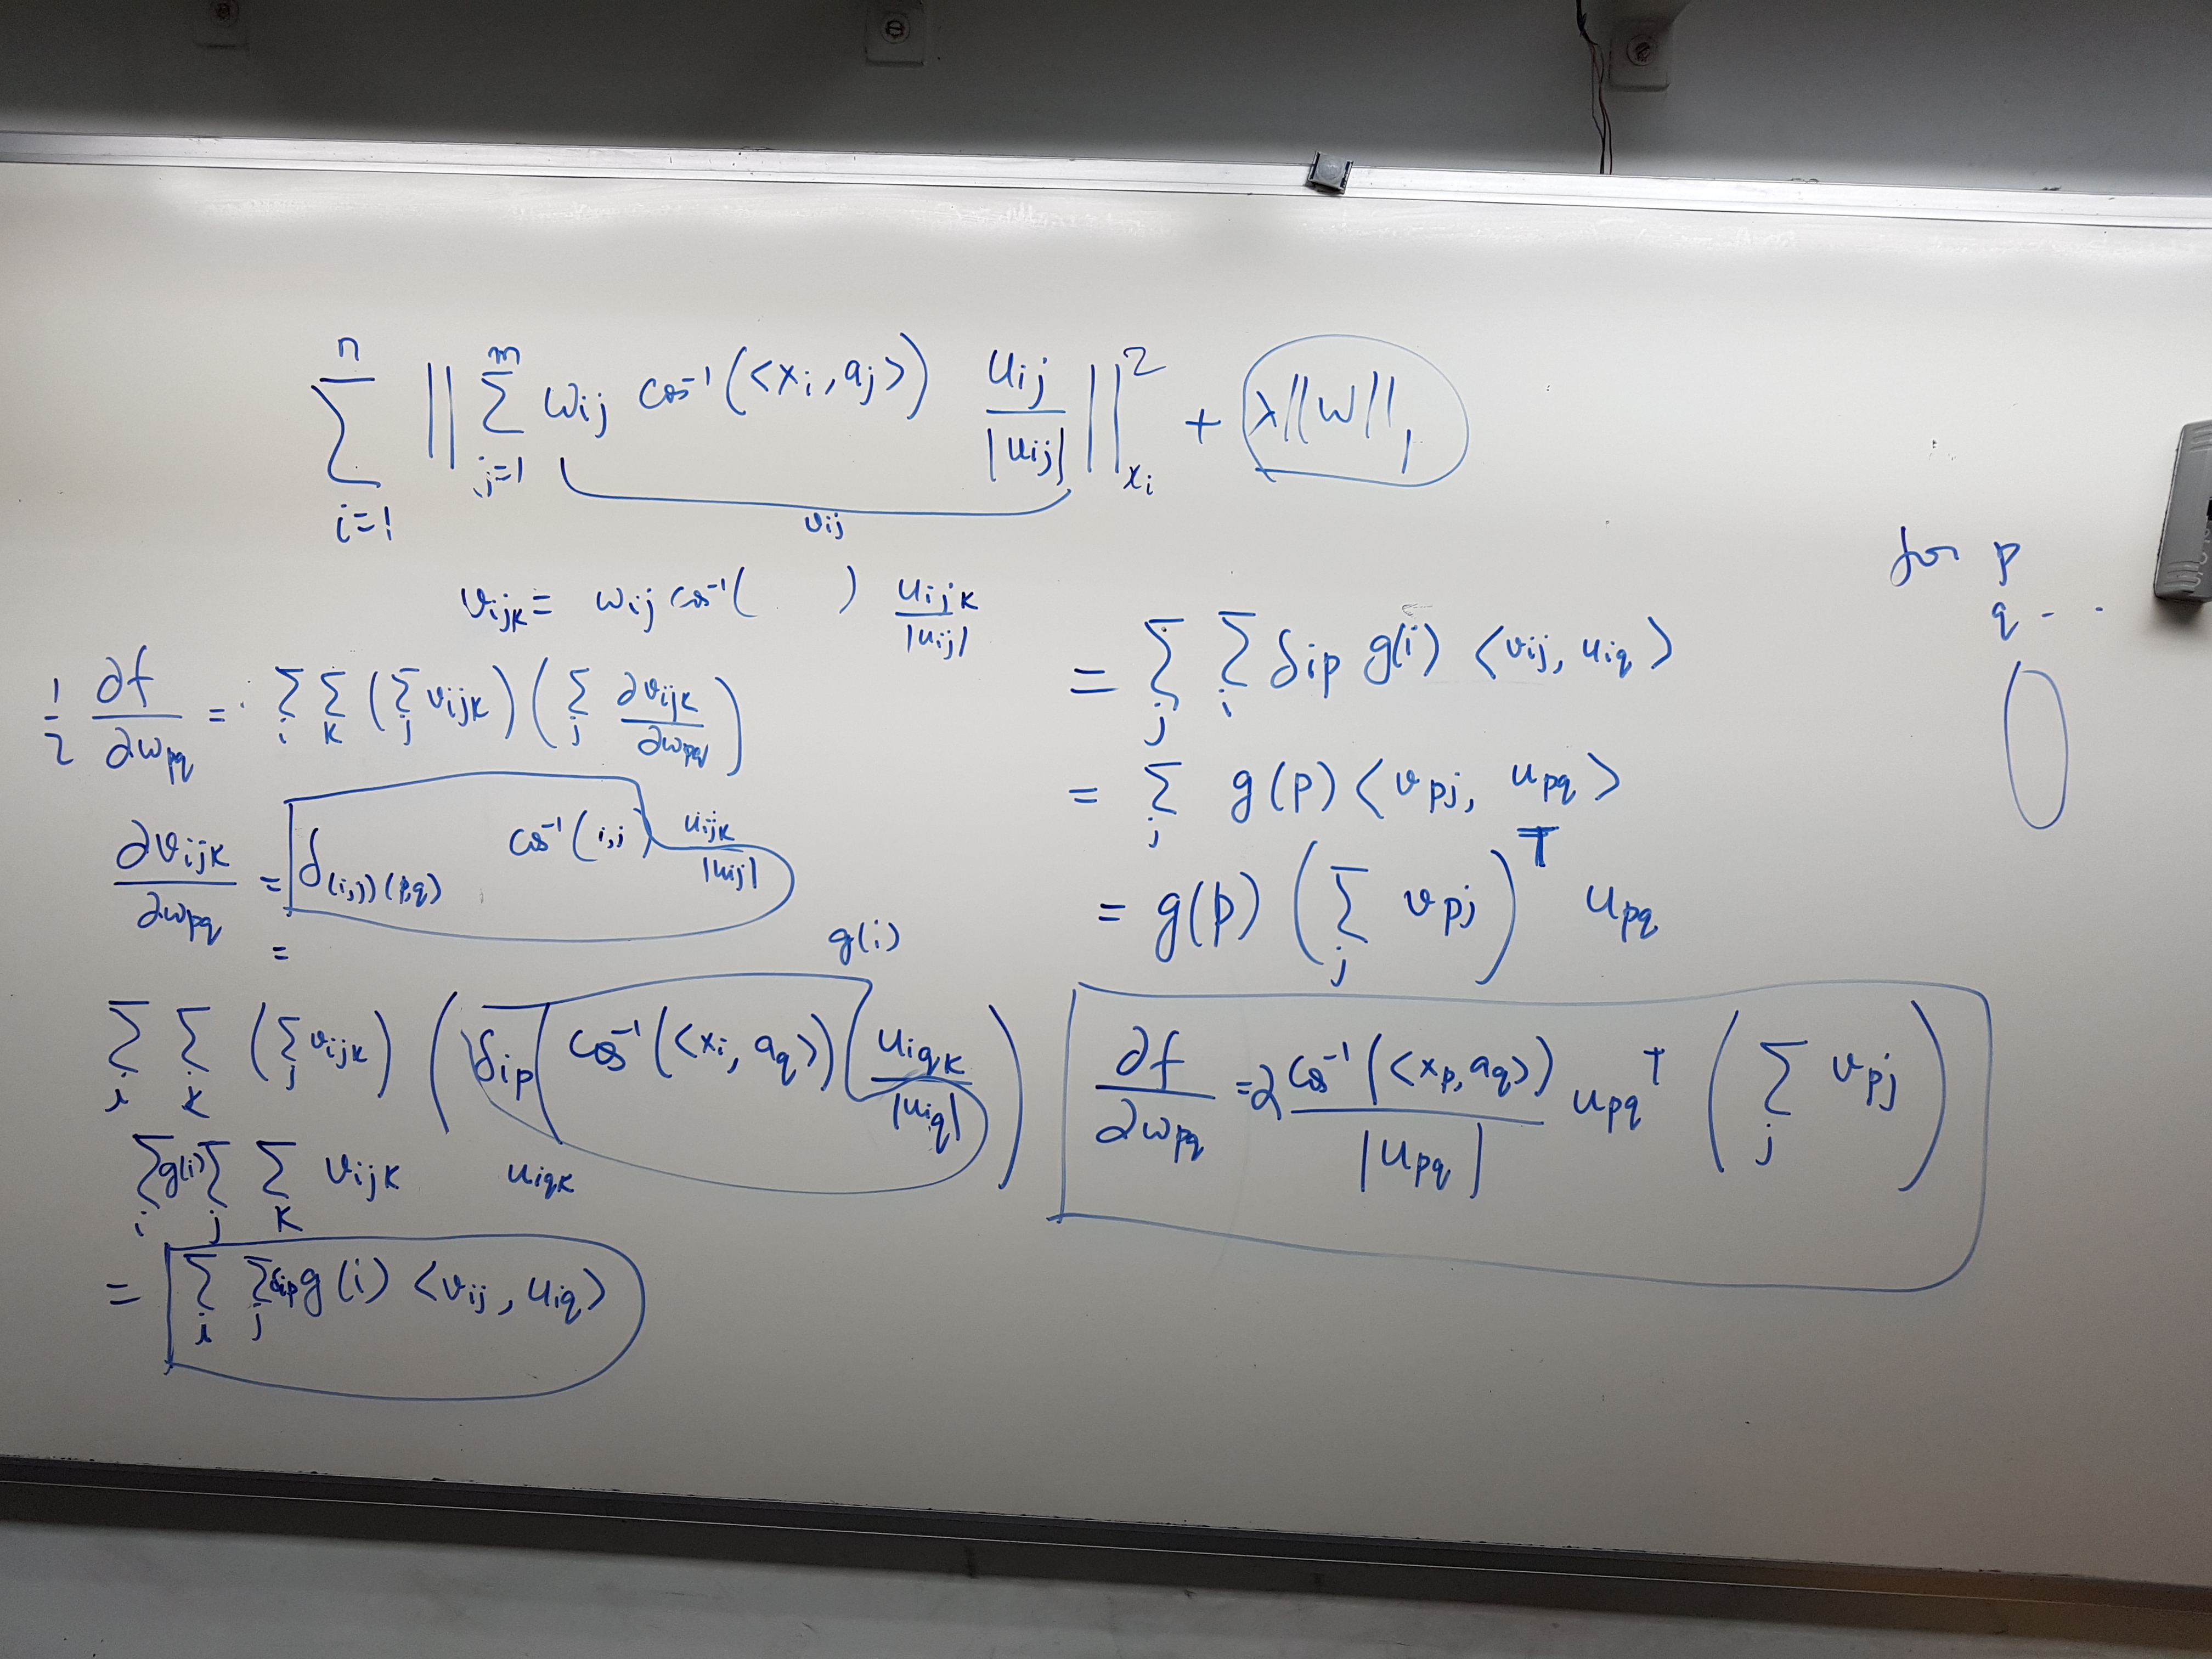 \sum_{i=1}^{n} || \sum_{j=1}^{m} w_{ij} cos^{-1}(<x_i, a_j>) \frac{u_{ij}}{|u_{ij}|} ||^2_{x_i} + λ||W||_1
v_{ij}
v_{ijk} = w_{ij} cos^{-1}( ) \frac{u_{ijk}}{|u_{ij}|}
\frac{1}{2} \frac{∂f}{∂w_{pq}} = \sum_i \sum_k (\sum_j v_{ijk}) (\sum_j \frac{∂v_{ijk}}{∂w_{pq}})
\frac{∂v_{ijk}}{∂w_{pq}} = δ_{(i,j)(p,q)} cos^{-1}(i,j) \frac{u_{ijk}}{|u_{ij}|}
=
g(i)
\sum_i \sum_k (\sum_j v_{ijk}) (δ_{ip} cos^{-1}(<x_i, a_q>) \frac{u_{iqk}}{|u_{iq}|})
\sum_i g(i) \sum_j \sum_k v_{ijk} u_{iqk}
= \sum_i \sum_j δ_{ip} g(i) <v_{ij}, u_{iq}>
= \sum_j \sum_i δ_{ip} g(i) <v_{ij}, u_{iq}>
= \sum_j g(p) <v_{pj}, u_{pq}>
= g(p) (\sum_j v_{pj})^T u_{pq}
\frac{∂f}{∂w_{pq}} = 2 \frac{cos^{-1}(<x_p, a_q>)}{|u_{pq}|} u_{pq}^T (\sum_j v_{pj})
for p
q - -